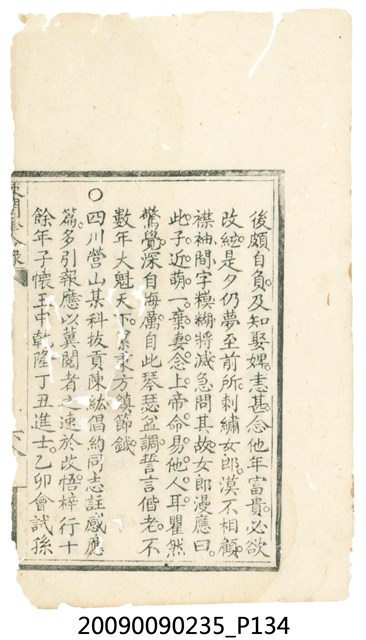 後頗自負。及知娶婢。恚甚。念他年富貴。必欲
改絃。是夕仍夢至前所。刺繡女郎。漠不相顧。
襟袖間字模糊將滅。急問其故。女郎漫應曰。
此子近萌一棄妻念。上帝命易他人耳。瞿然
驚覺。深自悔厲。自此琴瑟益調。誓言偕老。不
數年大魁天下。秉東方鎮節鉞。
○四川營山某科拔貢陳紘倡約同志註感應
篇。多引報應。以冀閱者之速於改悟。梓行十
餘年。子懷玉中乾隆丁丑進士。乙卯會試。孫
20090090235_P134